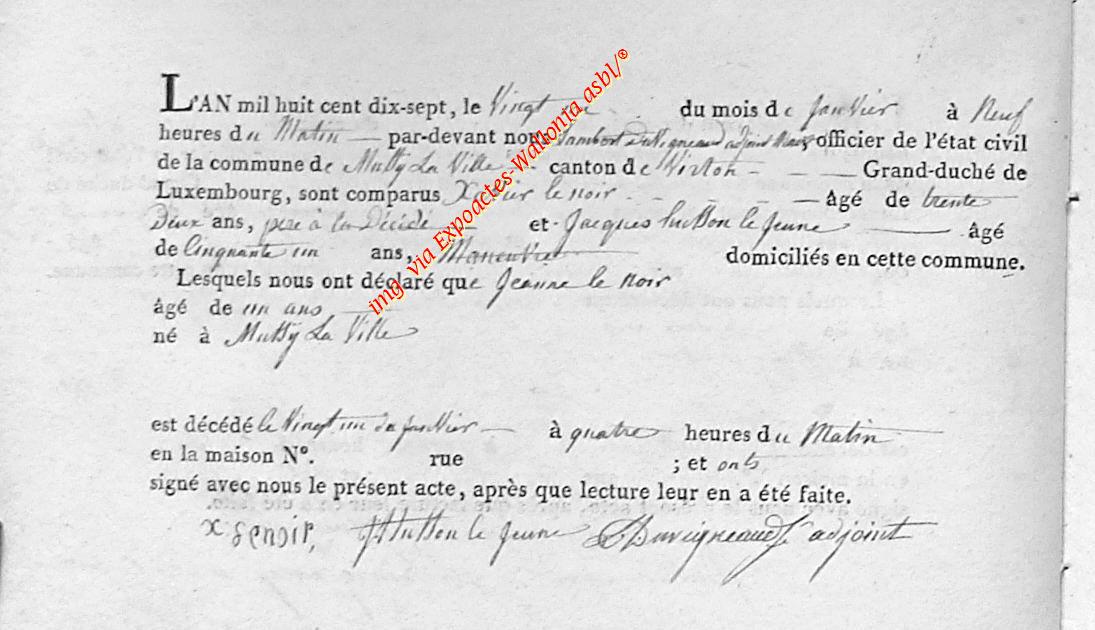 L'AN mil huit cent dix-sept, le Vingt un du mois de janvier à Neuf
heures du Matin par-devant nous Lambert Duvigneaud adjoint Maire, officier de l'état civil
de la commune de Mussy La Ville canton de Virton Grand-duché de
Luxembourg, sont comparus Xavier le noir âgé de trente
Deux ans, pere à la Décédé et Jacques husson le jeune âgé
de Cinquante un ans, Manouvrier domiciliés en cette commune.
Lesquels nous ont déclaré que Jeanne le noir
âgé de un ans
né à Mussy La Ville
est décédé le Vingt un de janvier à quatre heures du Matin
en la maison N°. rue ; et onts
signé avec nous le présent acte, après que lecture leur en a été faite.
x Lenoir, J husson le jeune L Duvigneaud adjoint
img via Expoactes-Wallonia asbl/®